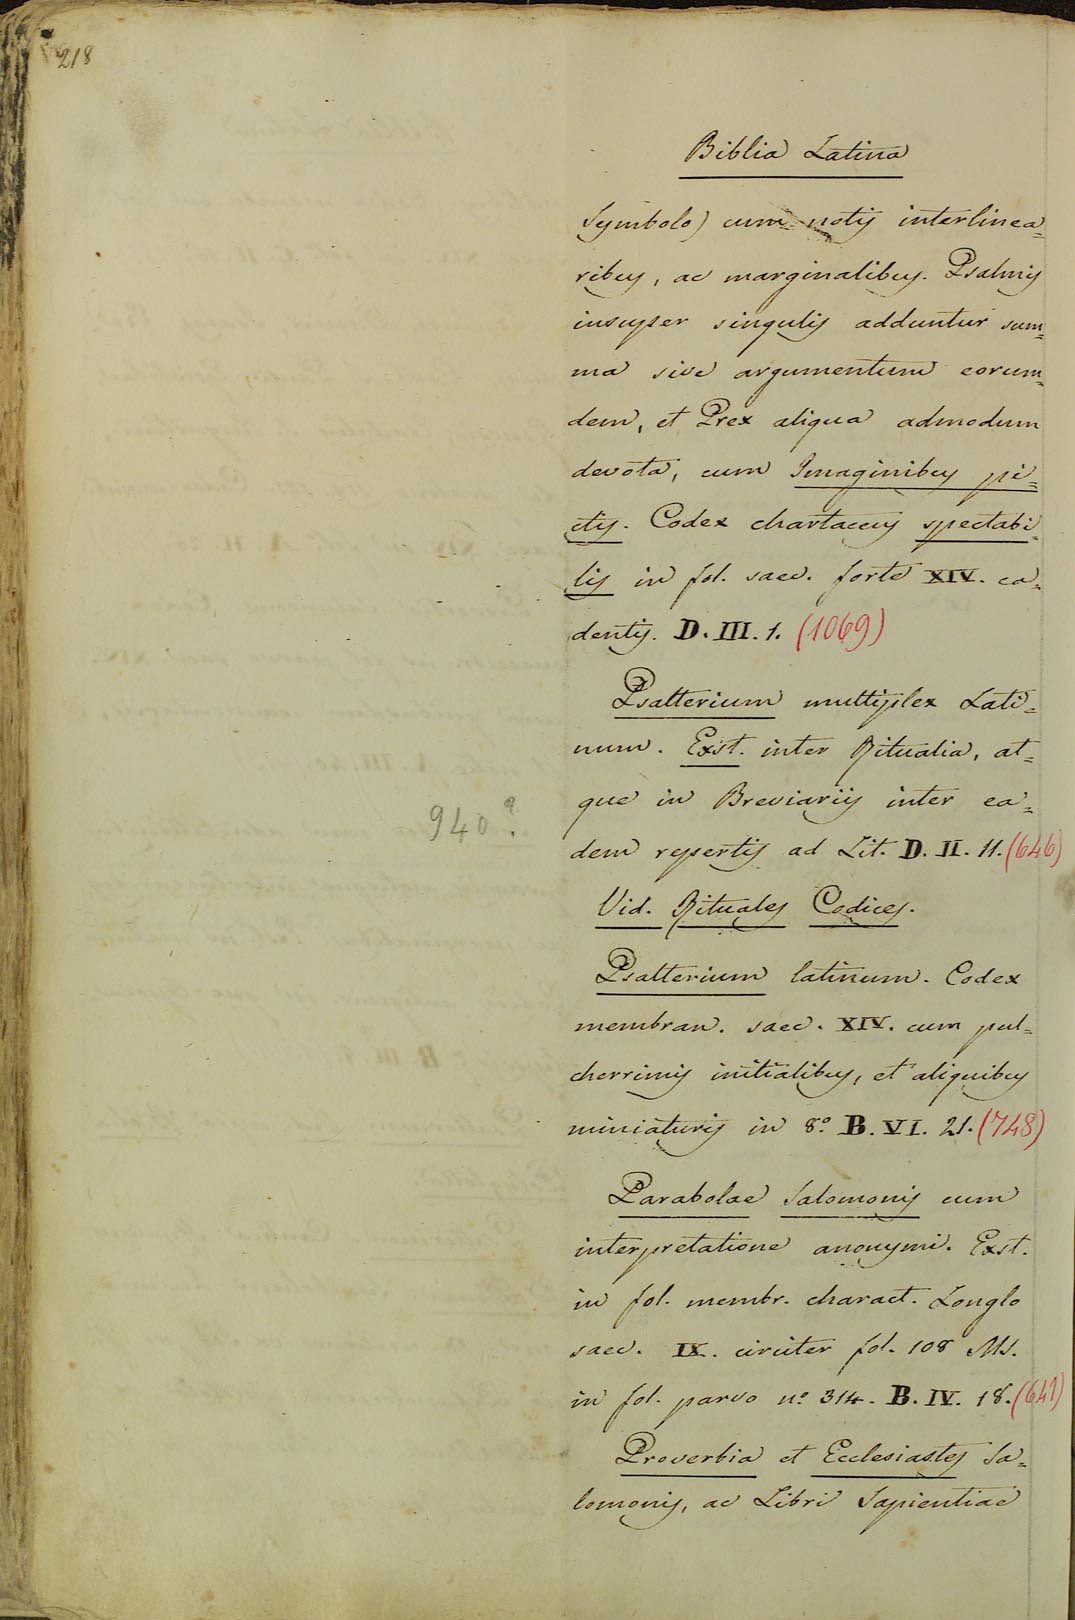 218
Biblia Latina
Symbolo) cum notis interlinea=
ribus, ac marginalibus. Psalmis
insuper singulis adduntur sum=
ma sive argumentum eorum=
dem, et Prex aliqua admodum
devota, cum Imaginibus pi=
ctis. Codex chartaceus spectabi=
lis in fol. saec. forte XIV. ca=
dentis. D. III. 1. (1069)
Psalterium multiplex Lati=
num. Exst. inter Ritualia, at=
que in Breviariis inter ea=
940?
dem repertis ad Lit. D. II. 11. (646)
Vid. Rituales Codices.
Psalterium latinum. Codex
membran. saec. XIV. cum pul=
cherrimis initialibus, et aliquibus
miniaturis in 8º B. VI. 21. (748)
Parabolae Salomonis cum
interpretatione anonymi. Exst.
in fol. membr. charact. Longlo
saec. IX. circiter fol. 108 Ms.
in fol. parvo nº 314. B. IV. 18. (641)
Proverbia et Ecclesiastes Sa=
lomonis, ac Libri Sapientiae